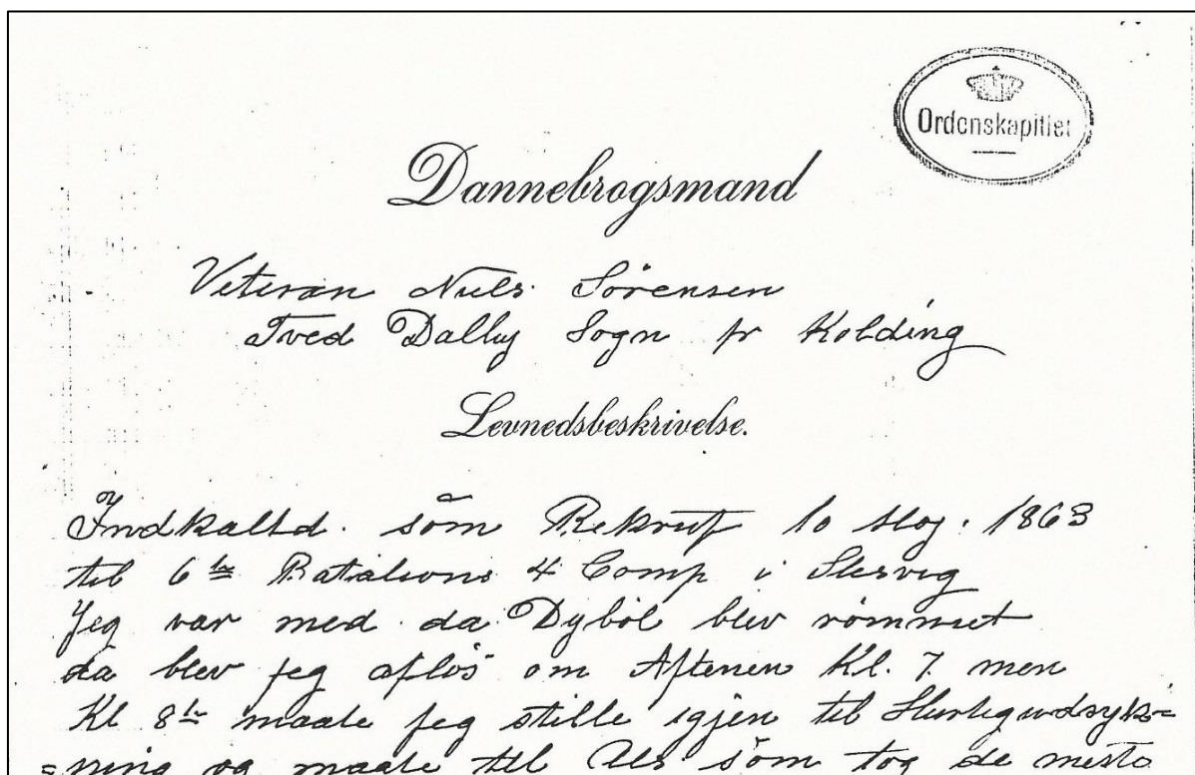 Ordenskapitlet
Dannebrogsmand
Veteran Niels Sörensen
Tved Dalby Sogn pr Kolding
Levnedsbeskrivelse.
Indkaltd. som Rekrut 10 1863
til 6te Batalions 4 Comp i Slesvig
Jeg var med da Dyböl blev römmet
da blev jeg aflös om Aftenen Kl. 7 men
Kl 8te maate jeg stille igjen til
ning og maate til Als som tog de meste